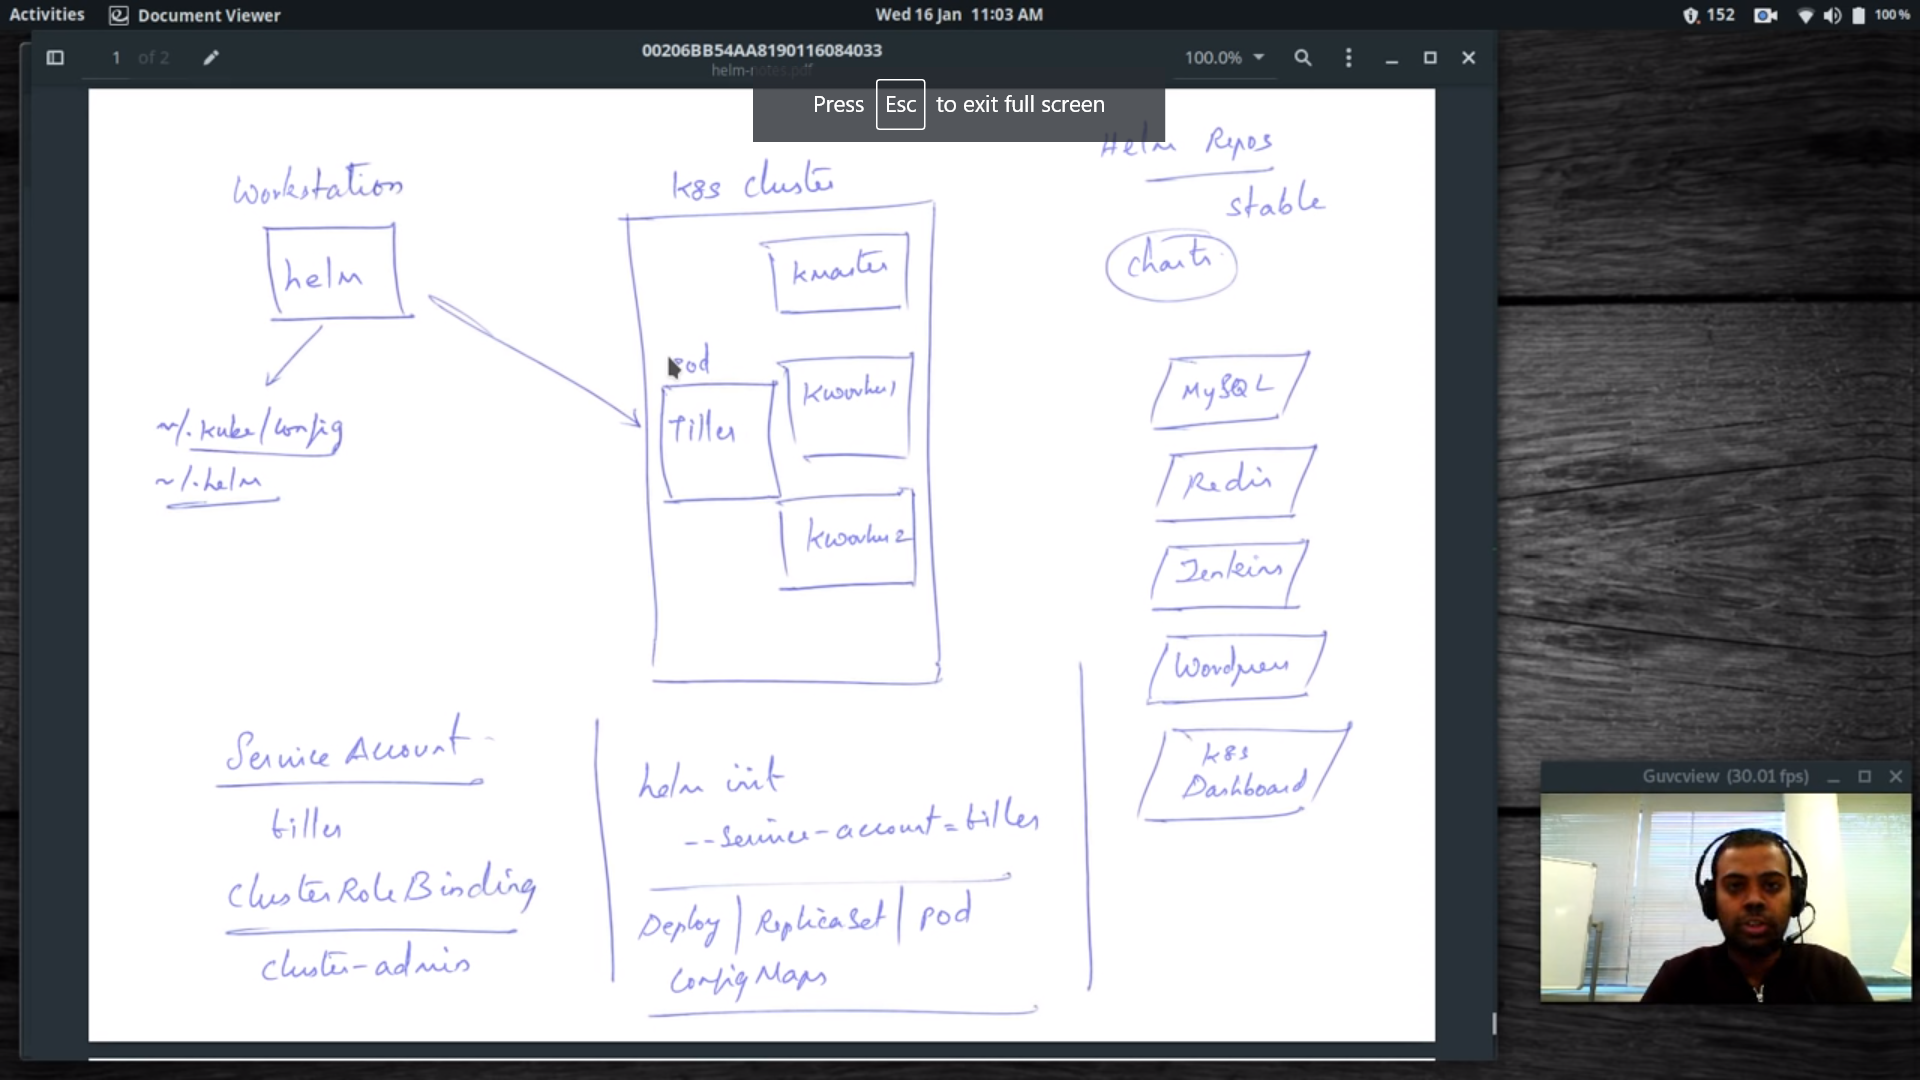 Activities
Document Viewer
Wed 16 Jan 11:03 AM
152
100 %
1 of 2
00206BB54AA8190116084033
helm-notes.pdf
100.0%
Press Esc to exit full screen
Workstation
helm
~/.kube/config
~/.helm
k8s cluster
kmaster
Pod
Tiller
kworker1
kworker2
Helm Repos
stable
Charts
MySQL
Redis
Jenkins
Wordpress
k8s
Dashboard
Service Account
tiller
ClusterRoleBinding
cluster-admin
helm init
--service-account=tiller
Deploy | ReplicaSet | pod
ConfigMaps
Guvcview (30.01 fps)